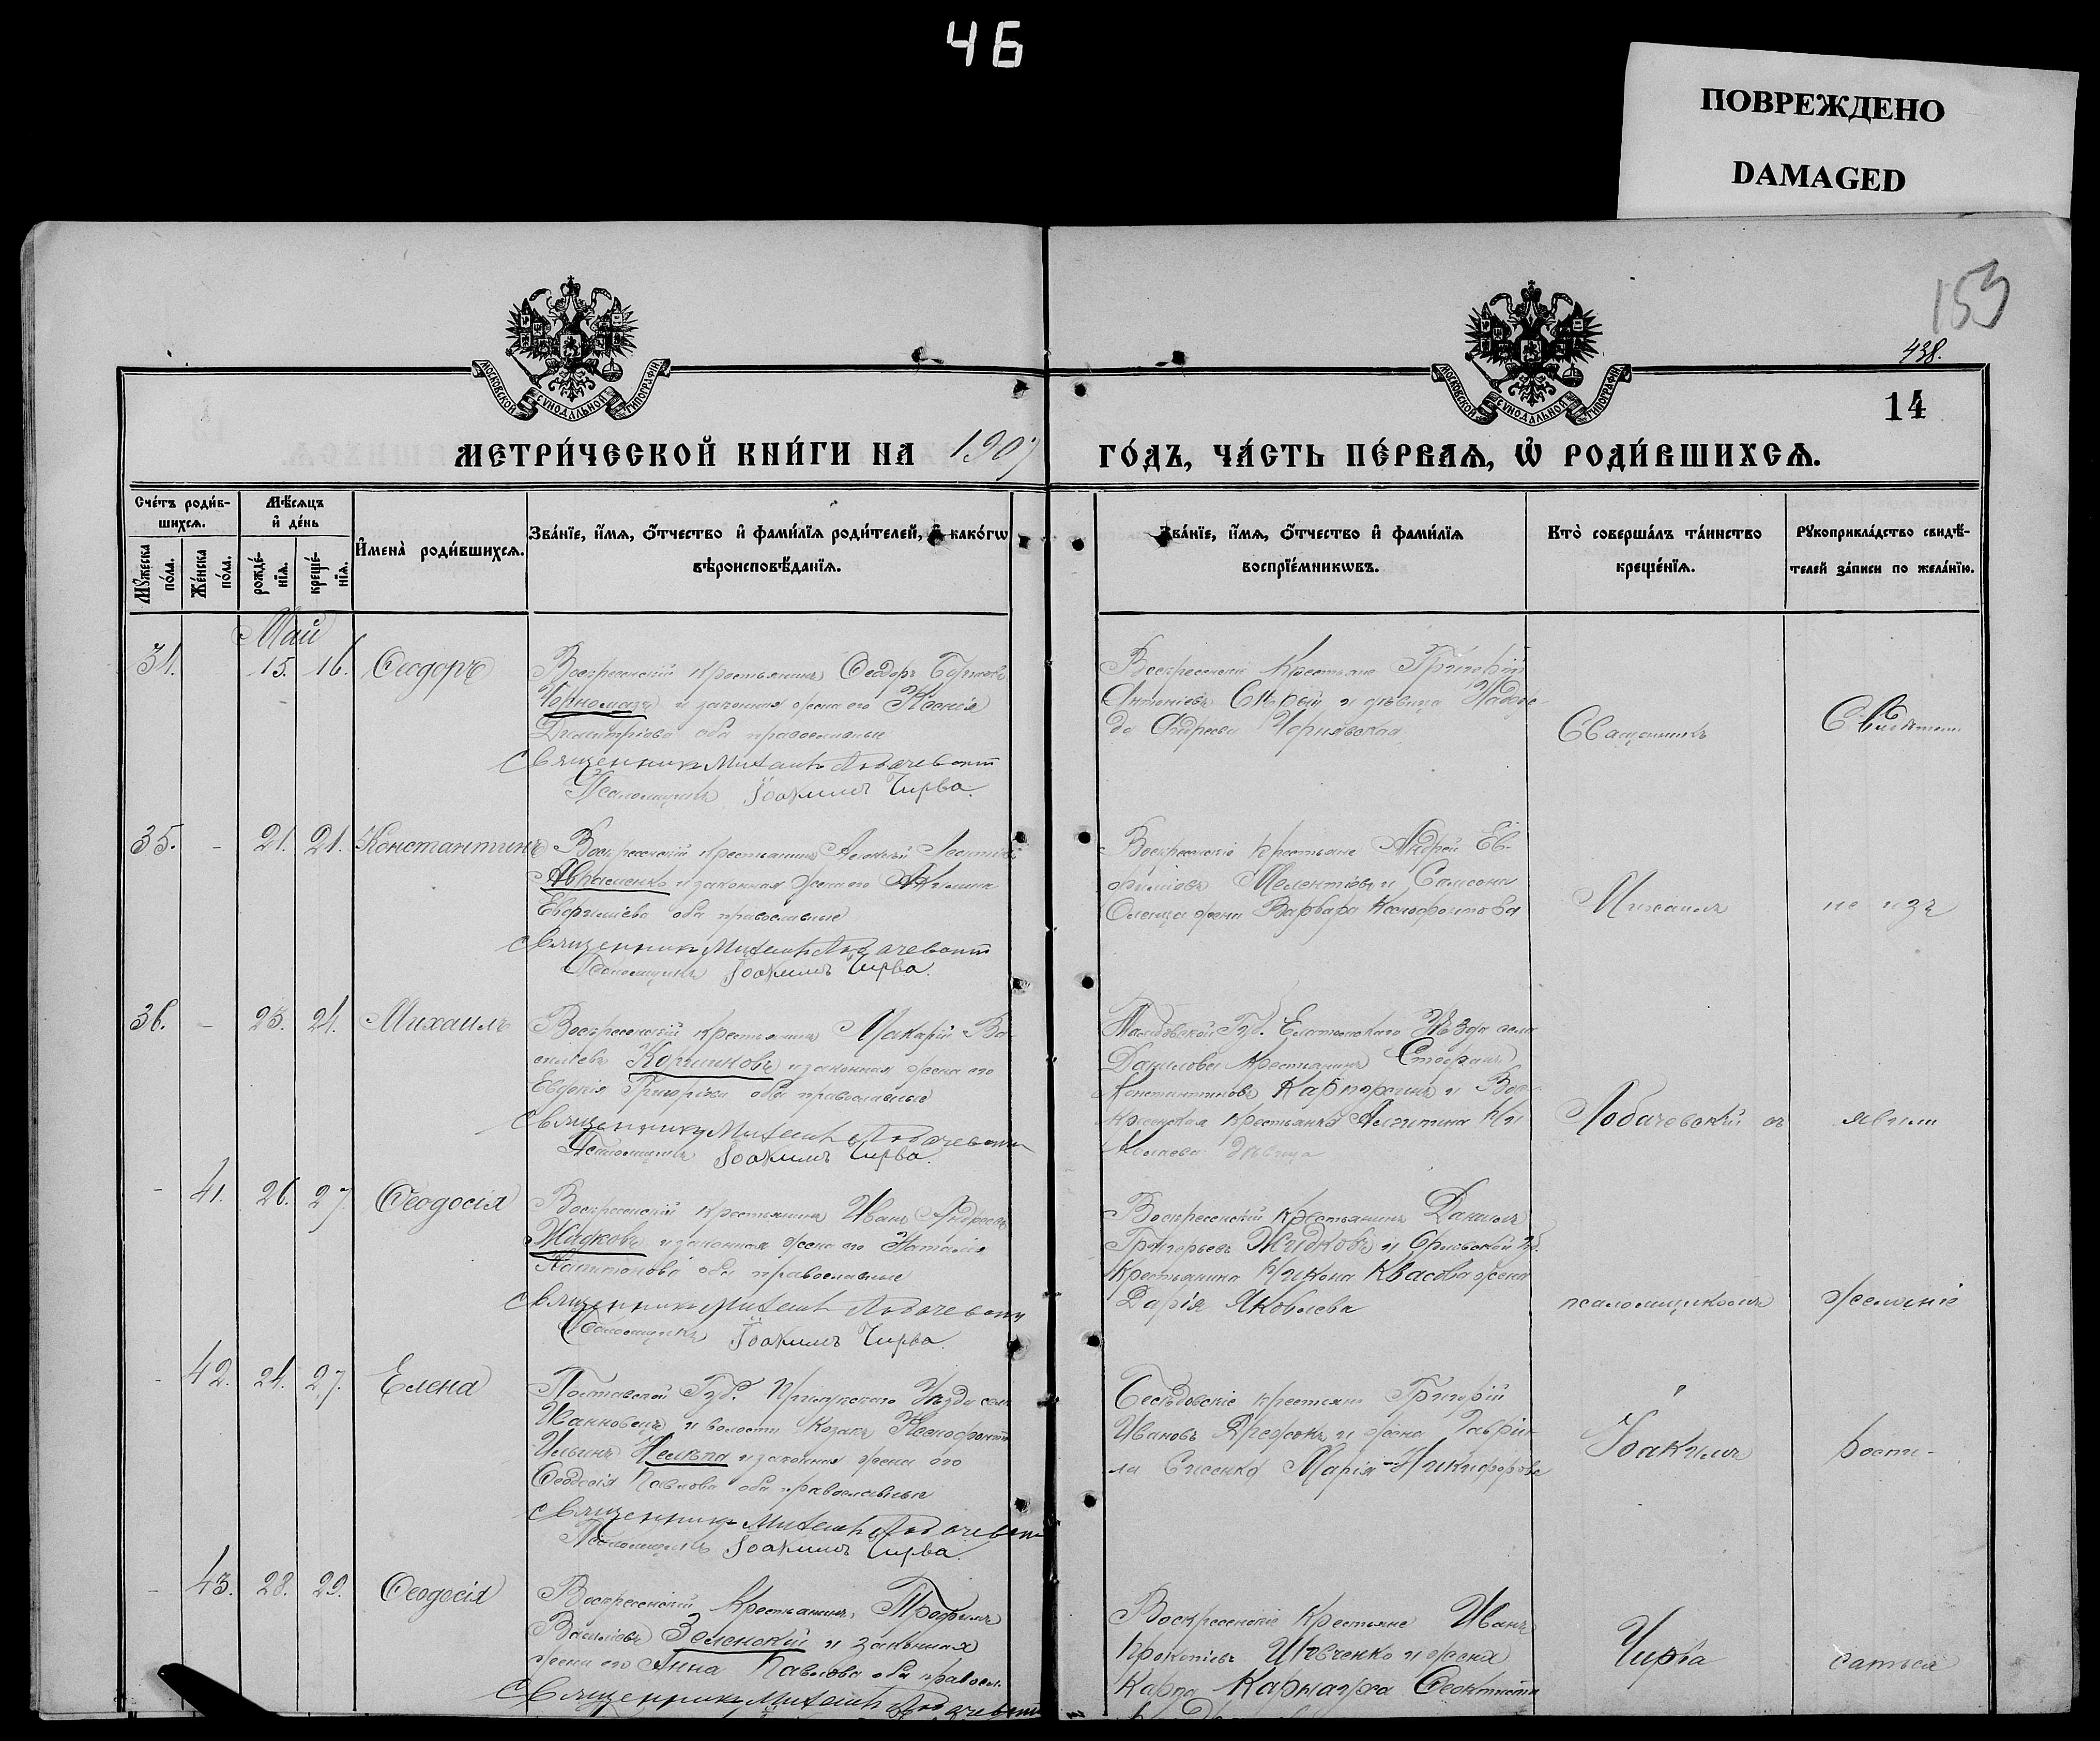 46
ПОВРЕЖДЕНО
DAMAGED
153
438.
14
МОСКОВСКОЙ СѴНОДАЛЬНОЙ ТИПОГРАФІИ
МОСКОВСКОЙ СѴНОДАЛЬНОЙ ТИПОГРАФІИ
МЕТРИ́ЧЕСКОЙ КНИ́ГИ НА 1907 ГО́ДЪ, ЧА́СТЬ ПЕ́РВАѦ, Ѡ РОДИ́ВШИХСѦ.
Сче́тъ роди́в-
шихсѧ.
Мѣ́сѧцъ
и де́нь
Мꙋ́жеска
по́ла.
Же́нска
по́ла.
рожде́-
нїѧ.
креще́-
нїѧ.
И҆мена̀ роди́вшихсѧ.
Зва́нїе, и҆́мѧ, ѻ҆́тчество и҆ фами́лїѧ роди́телей, и҆ како́гѡ
вѣроисповѣ́данїѧ.
Зва́нїе, и҆́мѧ, ѻ҆́тчество и҆ фами́лїѧ
воспрїе́мникѡвъ.
Кто̀ соверша́лъ та́инство
креще́нїѧ.
Рꙋкоприкла́дство свидѣ́-
телей за́писи по жела́нїю.
Май
34. 15. 16. Ѳеодоръ
Воскресенскій крестьянинъ Ѳеодоръ
Черномазъ и законная жена его Ксенія
Димитріева оба православные
Священникъ Михаилъ Лобачевскій
Псаломщикъ Іоакимъ Чирва.
Воскресенскіе крестьяне Григорій
Антоніевъ Сѣрый и дѣвица
Андреева Чернявская
Священникъ
Свидѣтели
35. - 21. 21. Константинъ
Воскресенскій крестьянинъ Алексій Леонтіевъ
Авраменко и законная жена его Акилина
оба православные
Священникъ Михаилъ Лобачевскій
Псаломщикъ Іоакимъ Чирва.
Воскресенскіе крестьяне Андрей Ев-
фиміевъ Мелентіевъ и Самсона
жена Варвара Ксенофонтова
Михаилъ
не изъ
36. - 23. 24. Михаилъ
Воскресенскій крестьянинъ Макарій Ва-
сильевъ и законная жена его
Евдокія Григорьева оба православные
Священникъ Михаилъ Лобачевскій
Псаломщикъ Іоакимъ Чирва.
Тамбовской Губ. Елатомскаго Уѣзда села
Данилова крестьянинъ Стефанъ
Константиновъ и Вос-
кресенская крестьянка
дѣвица
Лобачевскій съ
явили
- 41. 26. 27. Ѳеодосія
Воскресенскій крестьянинъ Иванъ Андреевъ
Жидковъ и законная жена его Наталія
оба православные
Священникъ Михаилъ Лобачевскій
Псаломщикъ Іоакимъ Чирва.
Воскресенскій крестьянинъ Даніилъ
Григорьевъ Жидковъ и Орловской Губ.
крестьянина Никона Квасова жена
Дарія Яковлева
псаломщикомъ
желаніе
- 42. 24. 27. Елена
Полтавской Губ. Прилукскаго Уѣзда села
и волости козакъ Ксенофонтъ
Ильинъ и законная жена его
Ѳеодосія Павлова оба православные
Священникъ Михаилъ Лобачевскій
Псаломщикъ Іоакимъ Чирва.
крестьяне Григорій
Ивановъ и жена Гаврі-
ла Марія Никифорова
Іоакимъ
роспи-
- 43. 28. 29. Ѳеодосія
Воскресенскій крестьянинъ Трофимъ
Зеленскій и законная
жена его Анна Павлова оба правосл.
Священникъ Михаилъ Лобачевскій
Воскресенскіе крестьяне Иванъ
Прокопіевъ Шевченко и жена
Карпа Ѳеоктиста
Чирва
саться